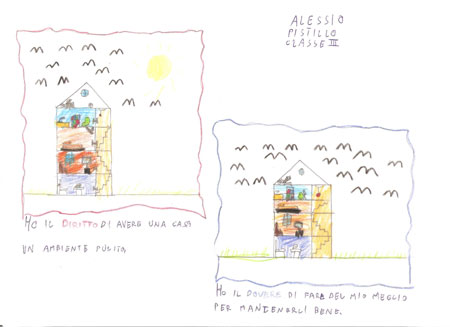 ALESSIO
PISTILLO
CLASSE III
HO IL DIRITTO DI AVERE UNA CASA
UN AMBIENTE PULITO
HO IL DOVERE DI FARE DEL MIO MEGLIO
PER MANTENERLI BENE.